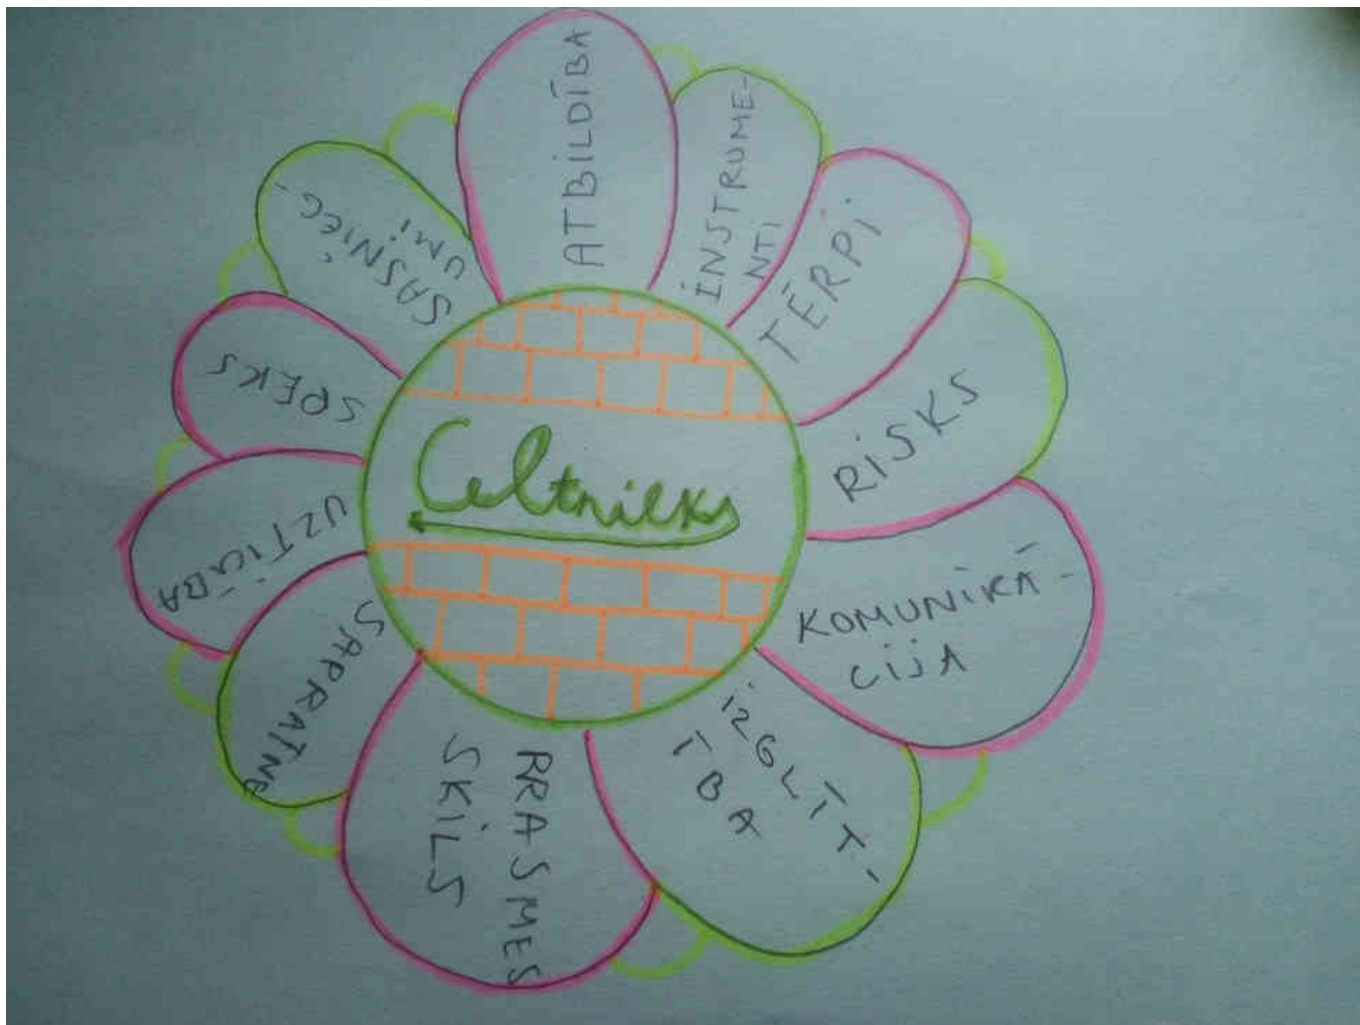 Celtnieks
ATBILDĪBA
INSTRUME-
NTI
TĒRPI
RISKS
KOMUNIKĀ-
CIJA
IZGLĪT-
ĪBA
RRASMES
SKILS
SAPRATNE
UZTICĪBA
SPEKS
SASNIEG-
UMI